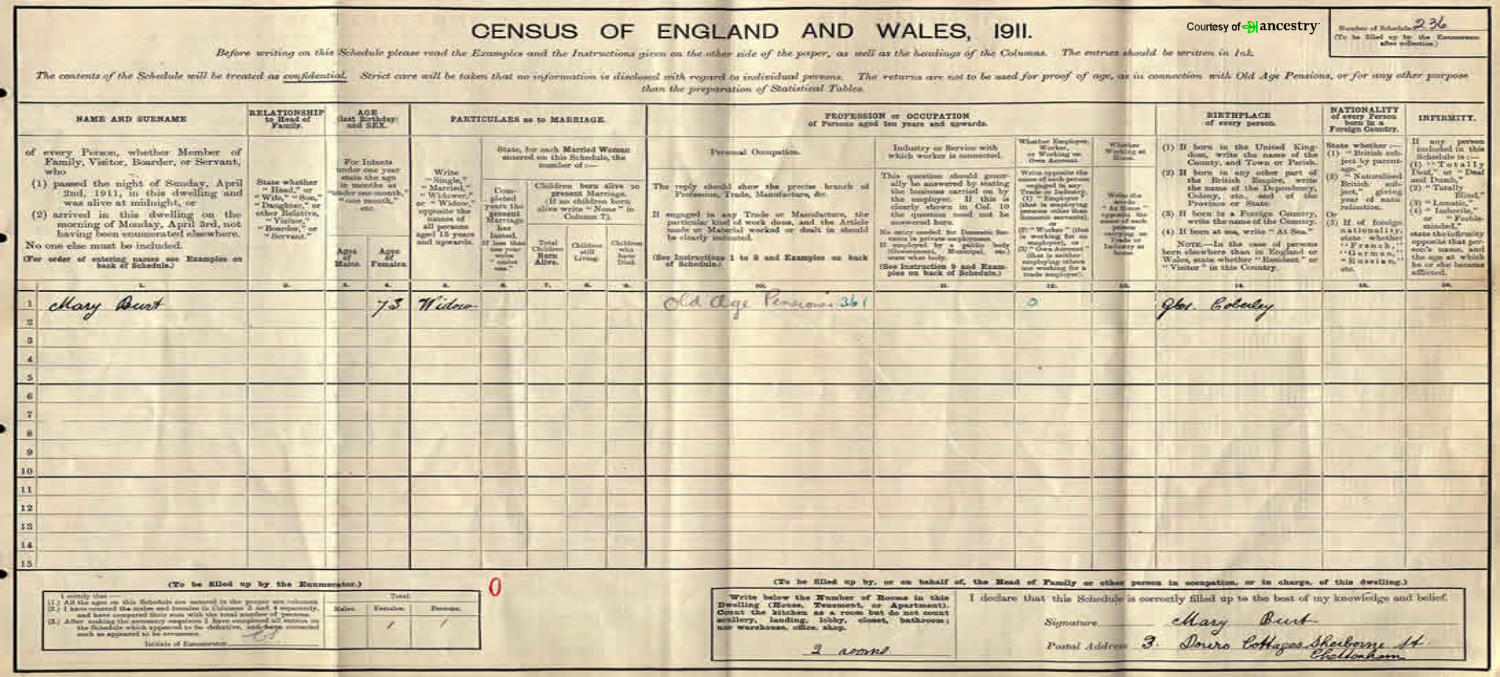 CENSUS OF ENGLAND AND WALES, 1911.
Courtesy of ancestry
Number of Schedule 236
(To be filled up by the Enumerator after collection.)
Before writing on this Schedule please read the Examples and the Instructions given on the other side of the paper, as well as the headings of the Columns. The entries should be written in Ink.
The contents of the Schedule will be treated as confidential. Strict care will be taken that no information is disclosed with regard to individual persons. The returns are not to be used for proof of age, as in connection with Old Age Pensions, or for any other purpose
than the preparation of Statistical Tables.
NAME AND SURNAME
of every Person, whether Member of
Family, Visitor, Boarder, or Servant,
who
(1) passed the night of Sunday, April
2nd, 1911, in this dwelling and
was alive at midnight, or
(2) arrived in this dwelling on the
morning of Monday, April 3rd, not
having been enumerated elsewhere.
No one else must be included.
(For order of entering names see Examples on
back of Schedule.)
RELATIONSHIP
to Head of
Family.
State whether
"Head," or
"Wife," "Son,"
"Daughter," or
other Relative,
"Visitor,"
"Boarder," or
"Servant."
AGE
(last Birthday)
and SEX.
For Infants
under one year
state the age
in months as
"under one month,"
"one month,"
etc.
Ages
of
Males.
Ages
of
Females.
PARTICULARS as to MARRIAGE.
Write
"Single,"
"Married,"
"Widower,"
or "Widow,"
opposite the
names of
all persons
aged 15 years
and upwards.
State, for each Married Woman
entered on this Schedule, the
number of:—
Completed
years the
present
Marriage
has
lasted.
If less than
one year
write
"under
one."
Children born alive to
present Marriage.
(If no children born
alive write "None" in
Column 7).
Total
Children
Born
Alive.
Children
still
Living.
Children
who
have
Died.
PROFESSION or OCCUPATION
of Persons aged ten years and upwards.
Personal Occupation.
The reply should show the precise branch of
Profession, Trade, Manufacture, &c.
If engaged in any Trade or Manufacture, the
particular kind of work done, and the Article
made or Material worked or dealt in should
be clearly indicated.
(See Instructions 1 to 8 and Examples on back
of Schedule.)
Industry or Service with
which worker is connected.
This question should gener-
ally be answered by stating
the business carried on by
the employer. If this is
clearly shown in Col. 10
the question need not be
answered here.
No entry needed for Domestic Ser-
vants in private employment.
If employed by a public body
(Government, Municipal, etc.)
state what body.
(See Instruction 9 and Exam-
ples on back of Schedule.)
Whether Employer,
Worker,
or Working on
Own Account.
Write opposite the
name of each person
engaged in any
Trade or Industry,
(1) "Employer"
(that is employing
persons other than
domestic servants),
or
(2) "Worker" (that
is working for an
employer), or
(3) "Own Account"
(that is neither
employing others
nor working for a
trade employer).
Whether
Working at
Home.
Write the
words
"At Home"
opposite the
name of each
person
carrying on
Trade or
Industry at
home.
BIRTHPLACE
of every person.
(1) If born in the United King-
dom, write the name of the
County, and Town or Parish.
(2) If born in any other part of
the British Empire, write
the name of the Dependency,
Colony, etc., and of the
Province or State.
(3) If born in a Foreign Country,
write the name of the Country.
(4) If born at sea, write "At Sea."
NOTE.—In the case of persons
born elsewhere than in England or
Wales, state whether "Resident" or
"Visitor" in this Country.
NATIONALITY
of every Person
born in a
Foreign Country.
State whether:—
(1) "British sub-
ject by parent-
age."
(2) "Naturalised
British sub-
ject," giving
year of natu-
ralisation.
Or
(3) If of foreign
nationality,
state whether
"French,"
"German,"
"Russian,"
etc.
INFIRMITY.
If any person
included in this
Schedule is:—
(1) "Totally
Deaf," or "Deaf
and Dumb,"
(2) "Totally
Blind,"
(3) "Lunatic,"
(4) "Imbecile,"
or "Feeble-
minded,"
state the infirmity
opposite that per-
son's name, and
the age at which
he or she became
afflicted.
1. 2. 3. 4. 5. 6. 7. 8. 9. 10. 11. 12. 13. 14. 15. 16.
1 Mary Burt 73 Widow Old Age Pensioner 361 0 Glos. Coberley
2
3
4
5
6
7
8
9
10
11
12
13
14
15
(To be filled up by the Enumerator.)
I certify that:—
(1.) All the ages on this Schedule are entered in the proper sex columns.
(2.) I have counted the males and females in Columns 3 and 4 separately,
and have compared their sum with the total number of persons.
(3.) After making the necessary enquiries I have completed all entries on
the Schedule which appeared to be defective, and have corrected
such as appeared to be erroneous.
Initials of Enumerator
Total
Males. Females. Persons.
1 1
0
(To be filled up by, or on behalf of, the Head of Family or other person in occupation, or in charge, of this dwelling.)
Write below the Number of Rooms in this
Dwelling (House, Tenement, or Apartment).
Count the kitchen as a room but do not count
scullery, landing, lobby, closet, bathroom;
nor warehouse, office, shop.
2 rooms
I declare that this Schedule is correctly filled up to the best of my knowledge and belief.
Signature Mary Burt
Postal Address 3. Douro Cottages Sherborne St
Cheltenham